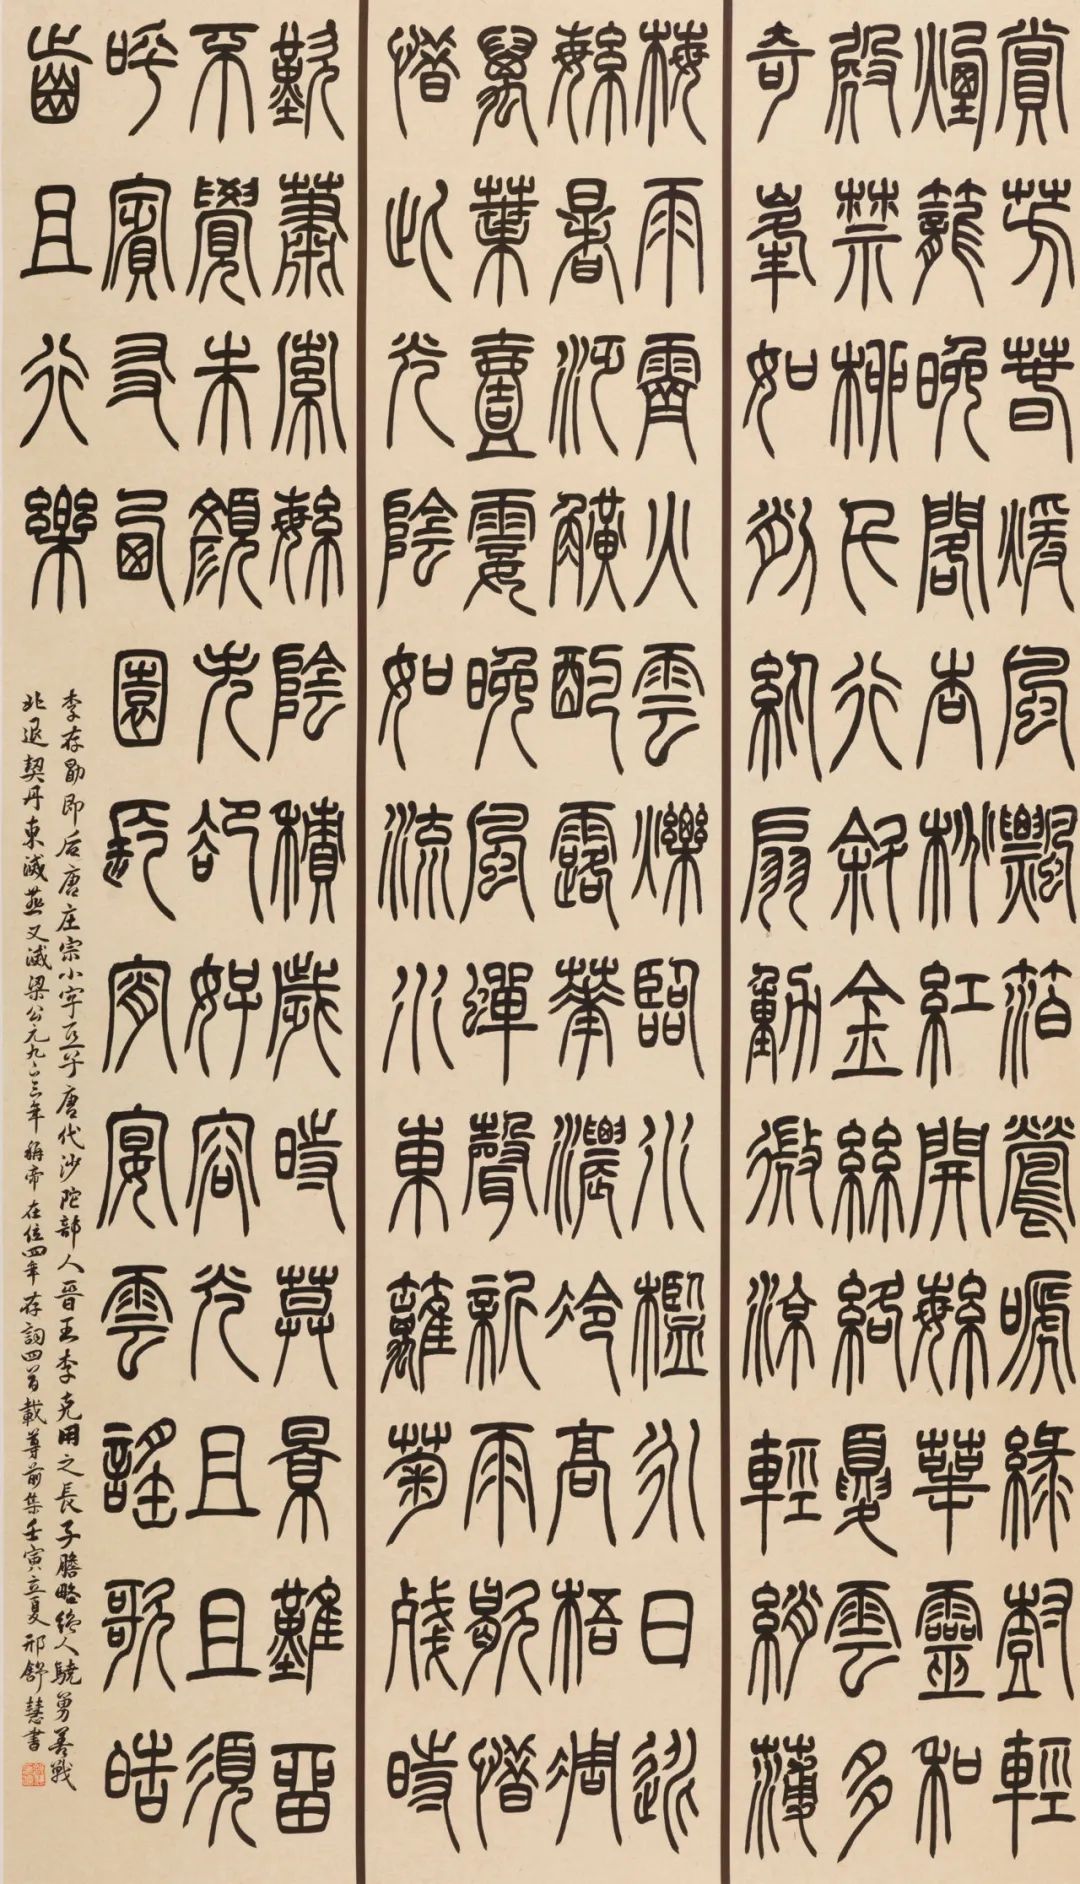 賞芳春煖風飄箔鶯嗁綠樹輕
煙籠晚閣杏桃紅開繁華靈和
殿禁柳千行斜金絲絡夏雲多
奇峯如削紈扇動微涼輕綃薄
梅雨霽火雲爍臨水檻永日逃
繁暑泛觥酌露華濃冷高梧凋
萬葉壹霎晚風蟬聲新雨歇惜
惜此光陰如流水東籬菊殘時
歎蕭索繁陰積歲時莫景難留
不覺朱顏失卻好容光且且須
呼賓友西園長宵宴雲謠歌皓
齒且行樂
李存勖即后唐庄宗小字亞子唐代沙陀部人晉王李克用之長子膽略絕人驍勇善戰
北退契丹東滅燕又滅梁公元九二三年稱帝在位四年存詞四首載尊前集壬寅立夏祁舒慧書